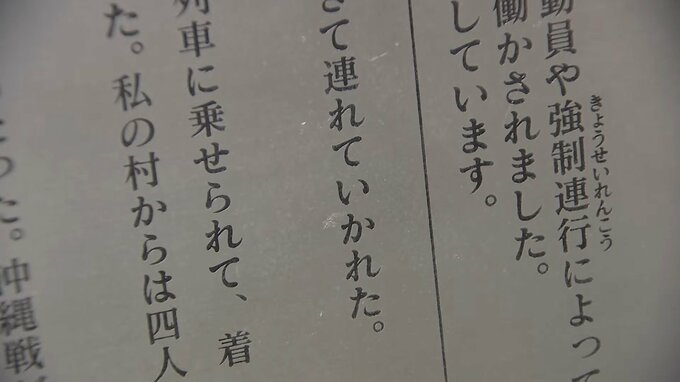 動員や強制連行によって
きょうせいれんこう
働かされました。
しています。
て連れていかれた。
列車に乗せられて、着
た。私の村からは四人
った。沖縄戦